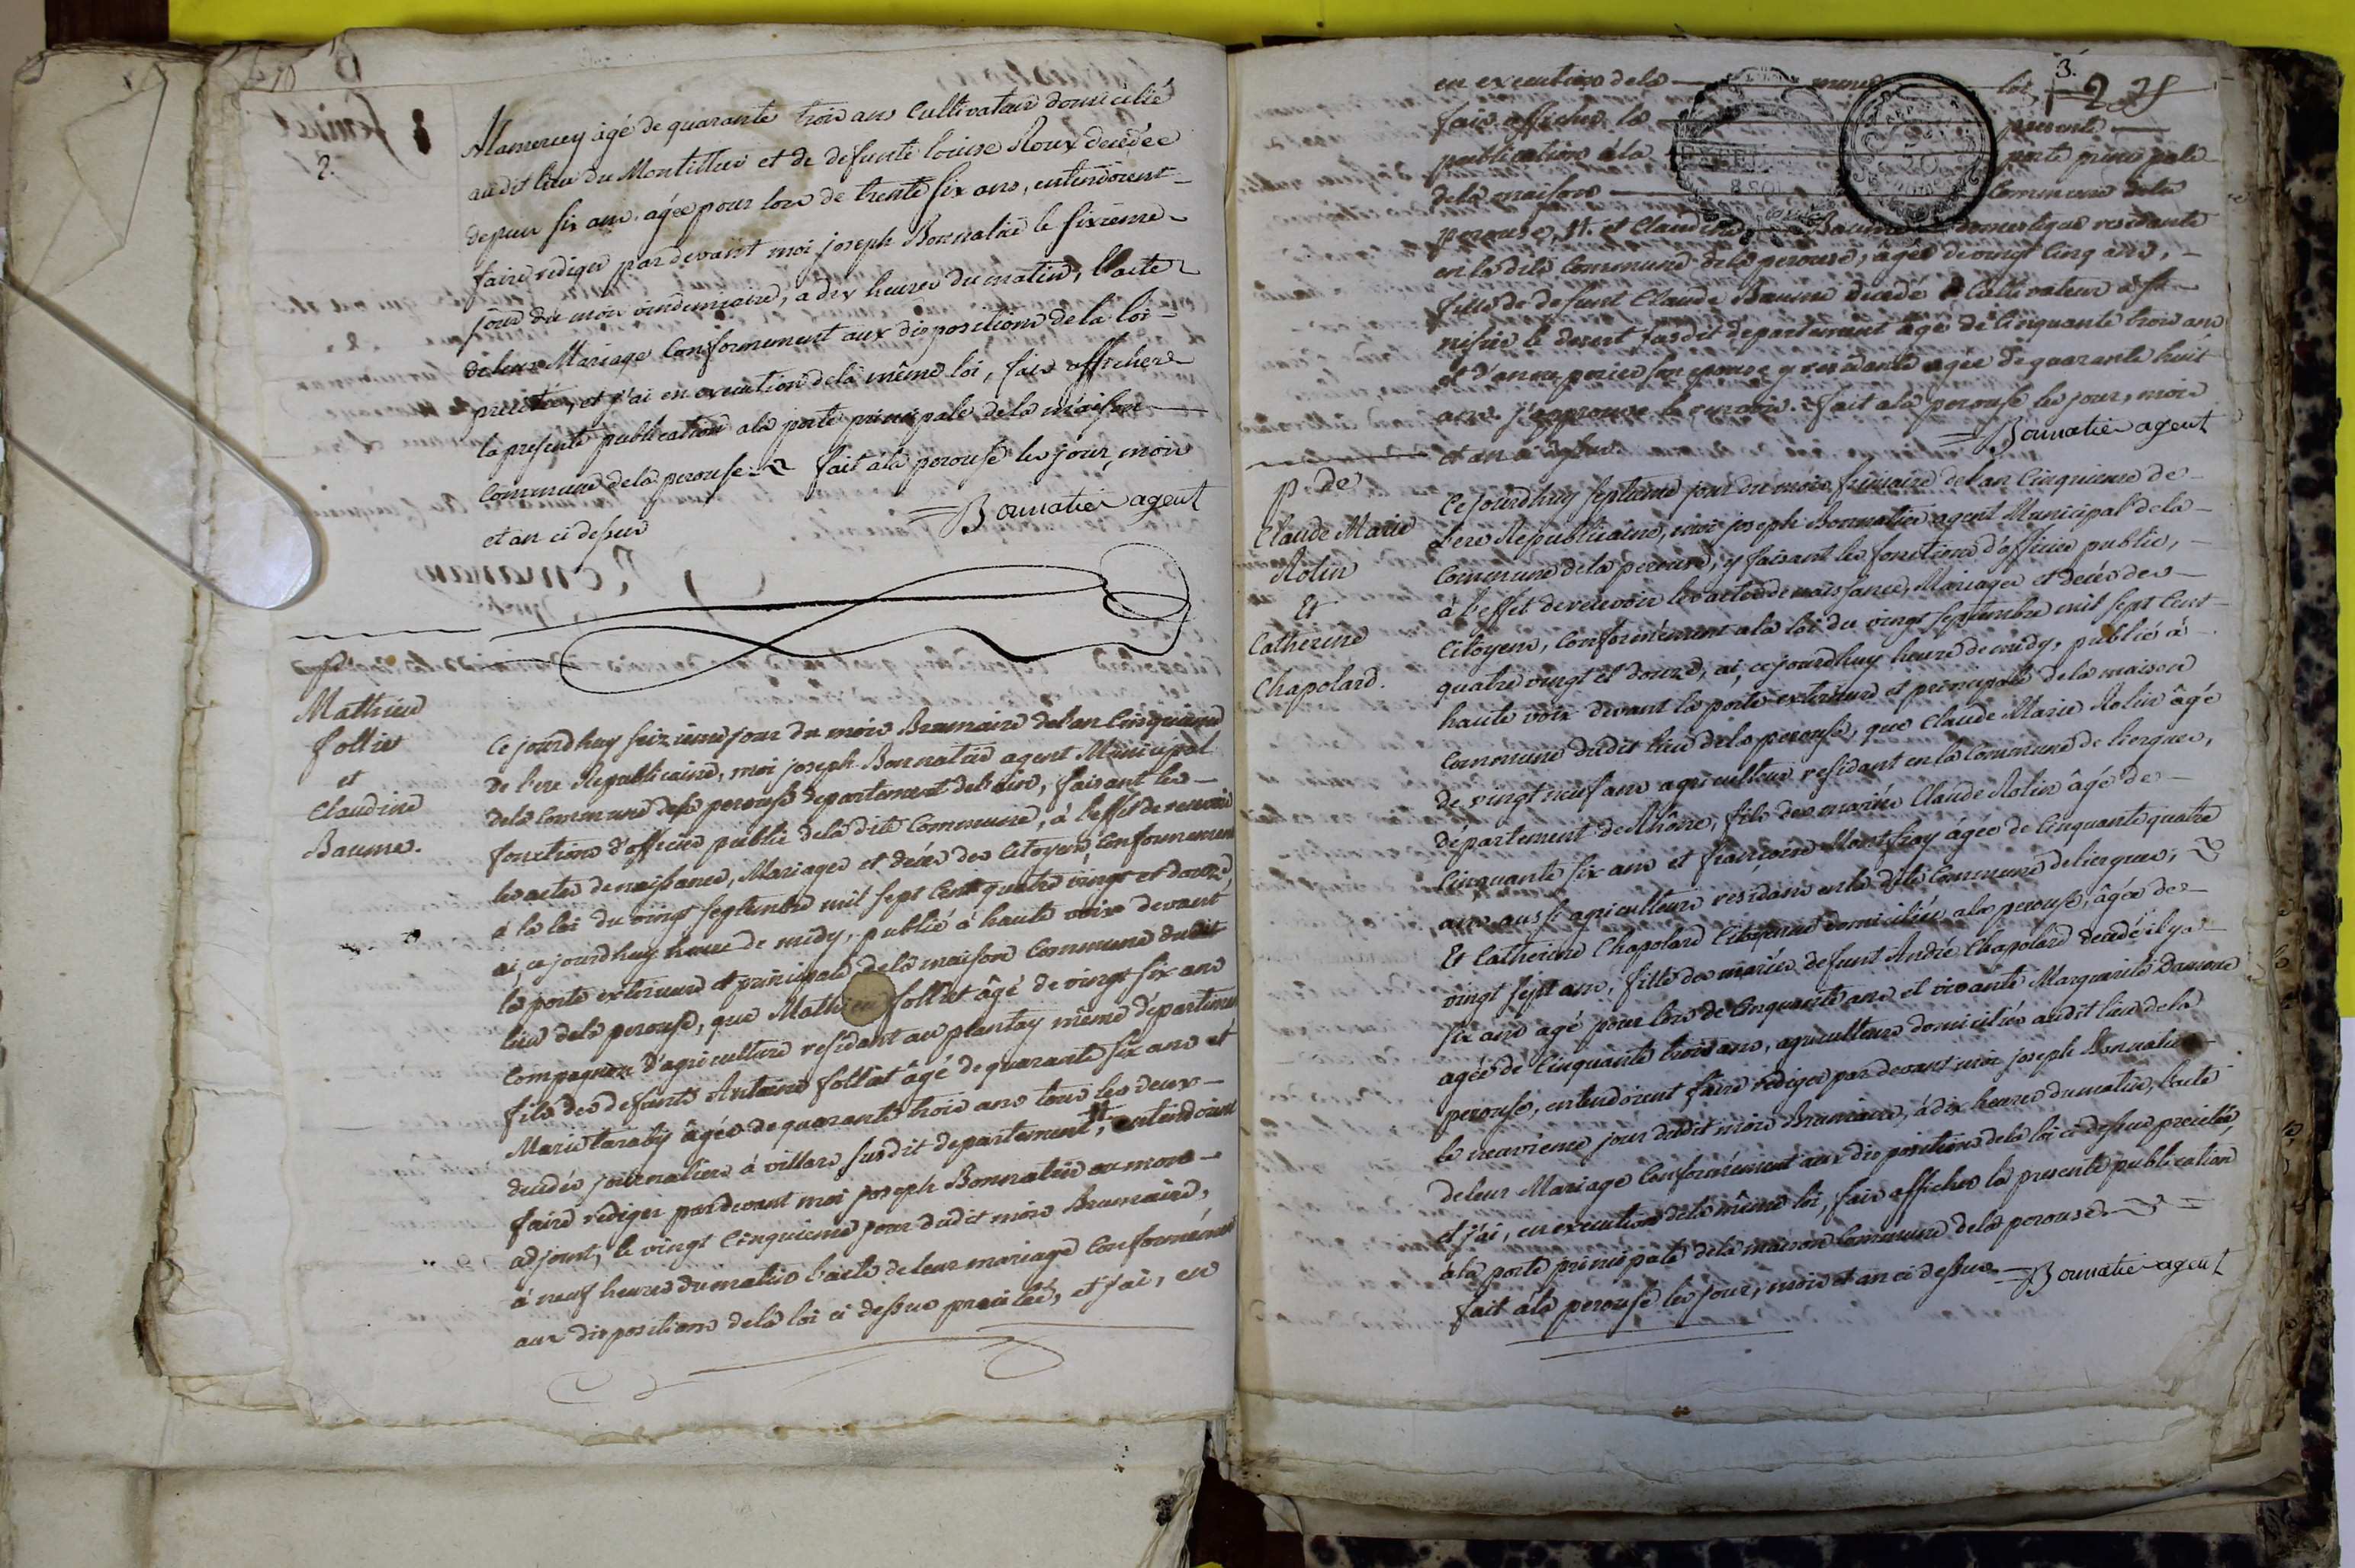 2.
Mamercey âgé de quarante trois ans Cultivateur domicilié
audit lieu du Montillier et de defunte louise Roux decedée
depuis six ans. agée pour lors de trente six ans, entendoient
faire rediger pardevant moi joseph Bonnatier le sixieme
jour du mois vindemiaire, a dix heures du matin, l'acte
de leur Mariage Conformement aux dispositions de la loi
precitée, et j'ai en execution de la même loi, fais afficher
la presente publication a la porte principale de la maison
Commune de la perouse. fait à la perouse les jour, mois
et an ci dessus
= Bonnatier agent
Mathieu
folliet
et
Claudine
Baume.
Ce jourd'huy seizieme jour du mois Brumaire de l'an Cinquieme
de l'ere Republicaine, moi joseph Bonnatier agent Municipal
de la Commune de la perouse departement de l'ain, faisant les
fonctions d'officier public de la dite Commune, à l'effet de recevoir
les actes de naissance, Mariages et décès des Citoyens Conformement
à la loi du vingt septembre mil sept Cent quatre vingt et douze,
ai, ce jourd'huy heure de midy, publié à haute voix devant
la porte exterieure et principale de la maison Commune dudit
lieu de la perouse, que Mathieu folliet âgé de vingt six ans
Compagnon d'agriculture residant au plantay même departement
fils des defunts Antoine folliet âgé de quarante six ans et
Marie taraby âgée de quarante trois ans tous les deux
decedés journaliers à villars susdit departement, # entendoient
faire rediger pardevant moi joseph Bonnatier ou mon
adjoint, le vingt Cinquieme jour dudit mois Brumaire,
à neuf heures du matin l'acte de leur mariage Conformement
aux dispositions de la loi ci dessus precitée, et j'ai, en
3.
en execution de la même loi,
fais afficher la presente
publication à la porte principale
de la maison Commune de la
perouse, #. et Claudine Baume domestique residante
en la dite Commune de la perouse, âgée de vingt Cinq ans,
fille de defunt Claude Baume decedé Cultivateur a St
nisier le desert susdit departement âgé de Cinquante trois ans
et d'anne perier son epouse y residante agée de quarante huit
ans. j'approuve le renvoi. fait a la perouse les jour, mois
et an ci dessus.
= Bonnatier agent
p. de
Claude Marie
Rolin
Et
Catherine
Chapolard.
Ce jourd'huy septieme jour du mois frimaire de l'an Cinquieme de
l'ere Republicaine, moi joseph Bonnatier agent Municipal de la
Commune de la perouse, y faisant les fonctions d'officier public,
à l'effet de recevoir les actes de naissance, Mariages et décès des
Citoyens, Conformément a la loi du vingt septembre mil sept Cent
quatre vingt et douze, ai, ce jourd'huy heure de midy, publié à
haute voix devant la porte exterieure et principale de la maison
Commune dudit lieu de la perouse, que Claude Marie Rolin âgé
de vingt neuf ans agriculteur residant en la Commune de liergues,
département du Rhône, fils des mariés Claude Rolin âgé de
Cinquante six ans et françoise Montfray âgée de Cinquante quatre
ans aussi agriculteurs residans en la dite Commune de liergues,
Et Catherine Chapolard Citoyenne domiciliée a la perouse, âgée de
vingt sept ans, fille des mariés defunt André Chapolard decedé il y a
six ans agé pour lors de Cinquante ans et vivante Marguerite
agée de Cinquante trois ans, agriculteurs domiciliés audit lieu de la
perouse, entendoient faire rediger pardevant moi joseph Bonnatier
le neuvieme jour dudit mois Brumaire, à dix heures du matin, l'acte
de leur Mariage Conformément aux dispositions de la loi ci dessus precitée,
et j'ai, en execution de la même loi, fais afficher la presente publication
à la porte principale de la maison Commune de la perouse.
fait à la perouse les jour, mois et an ci dessus. = Bonnatier agent